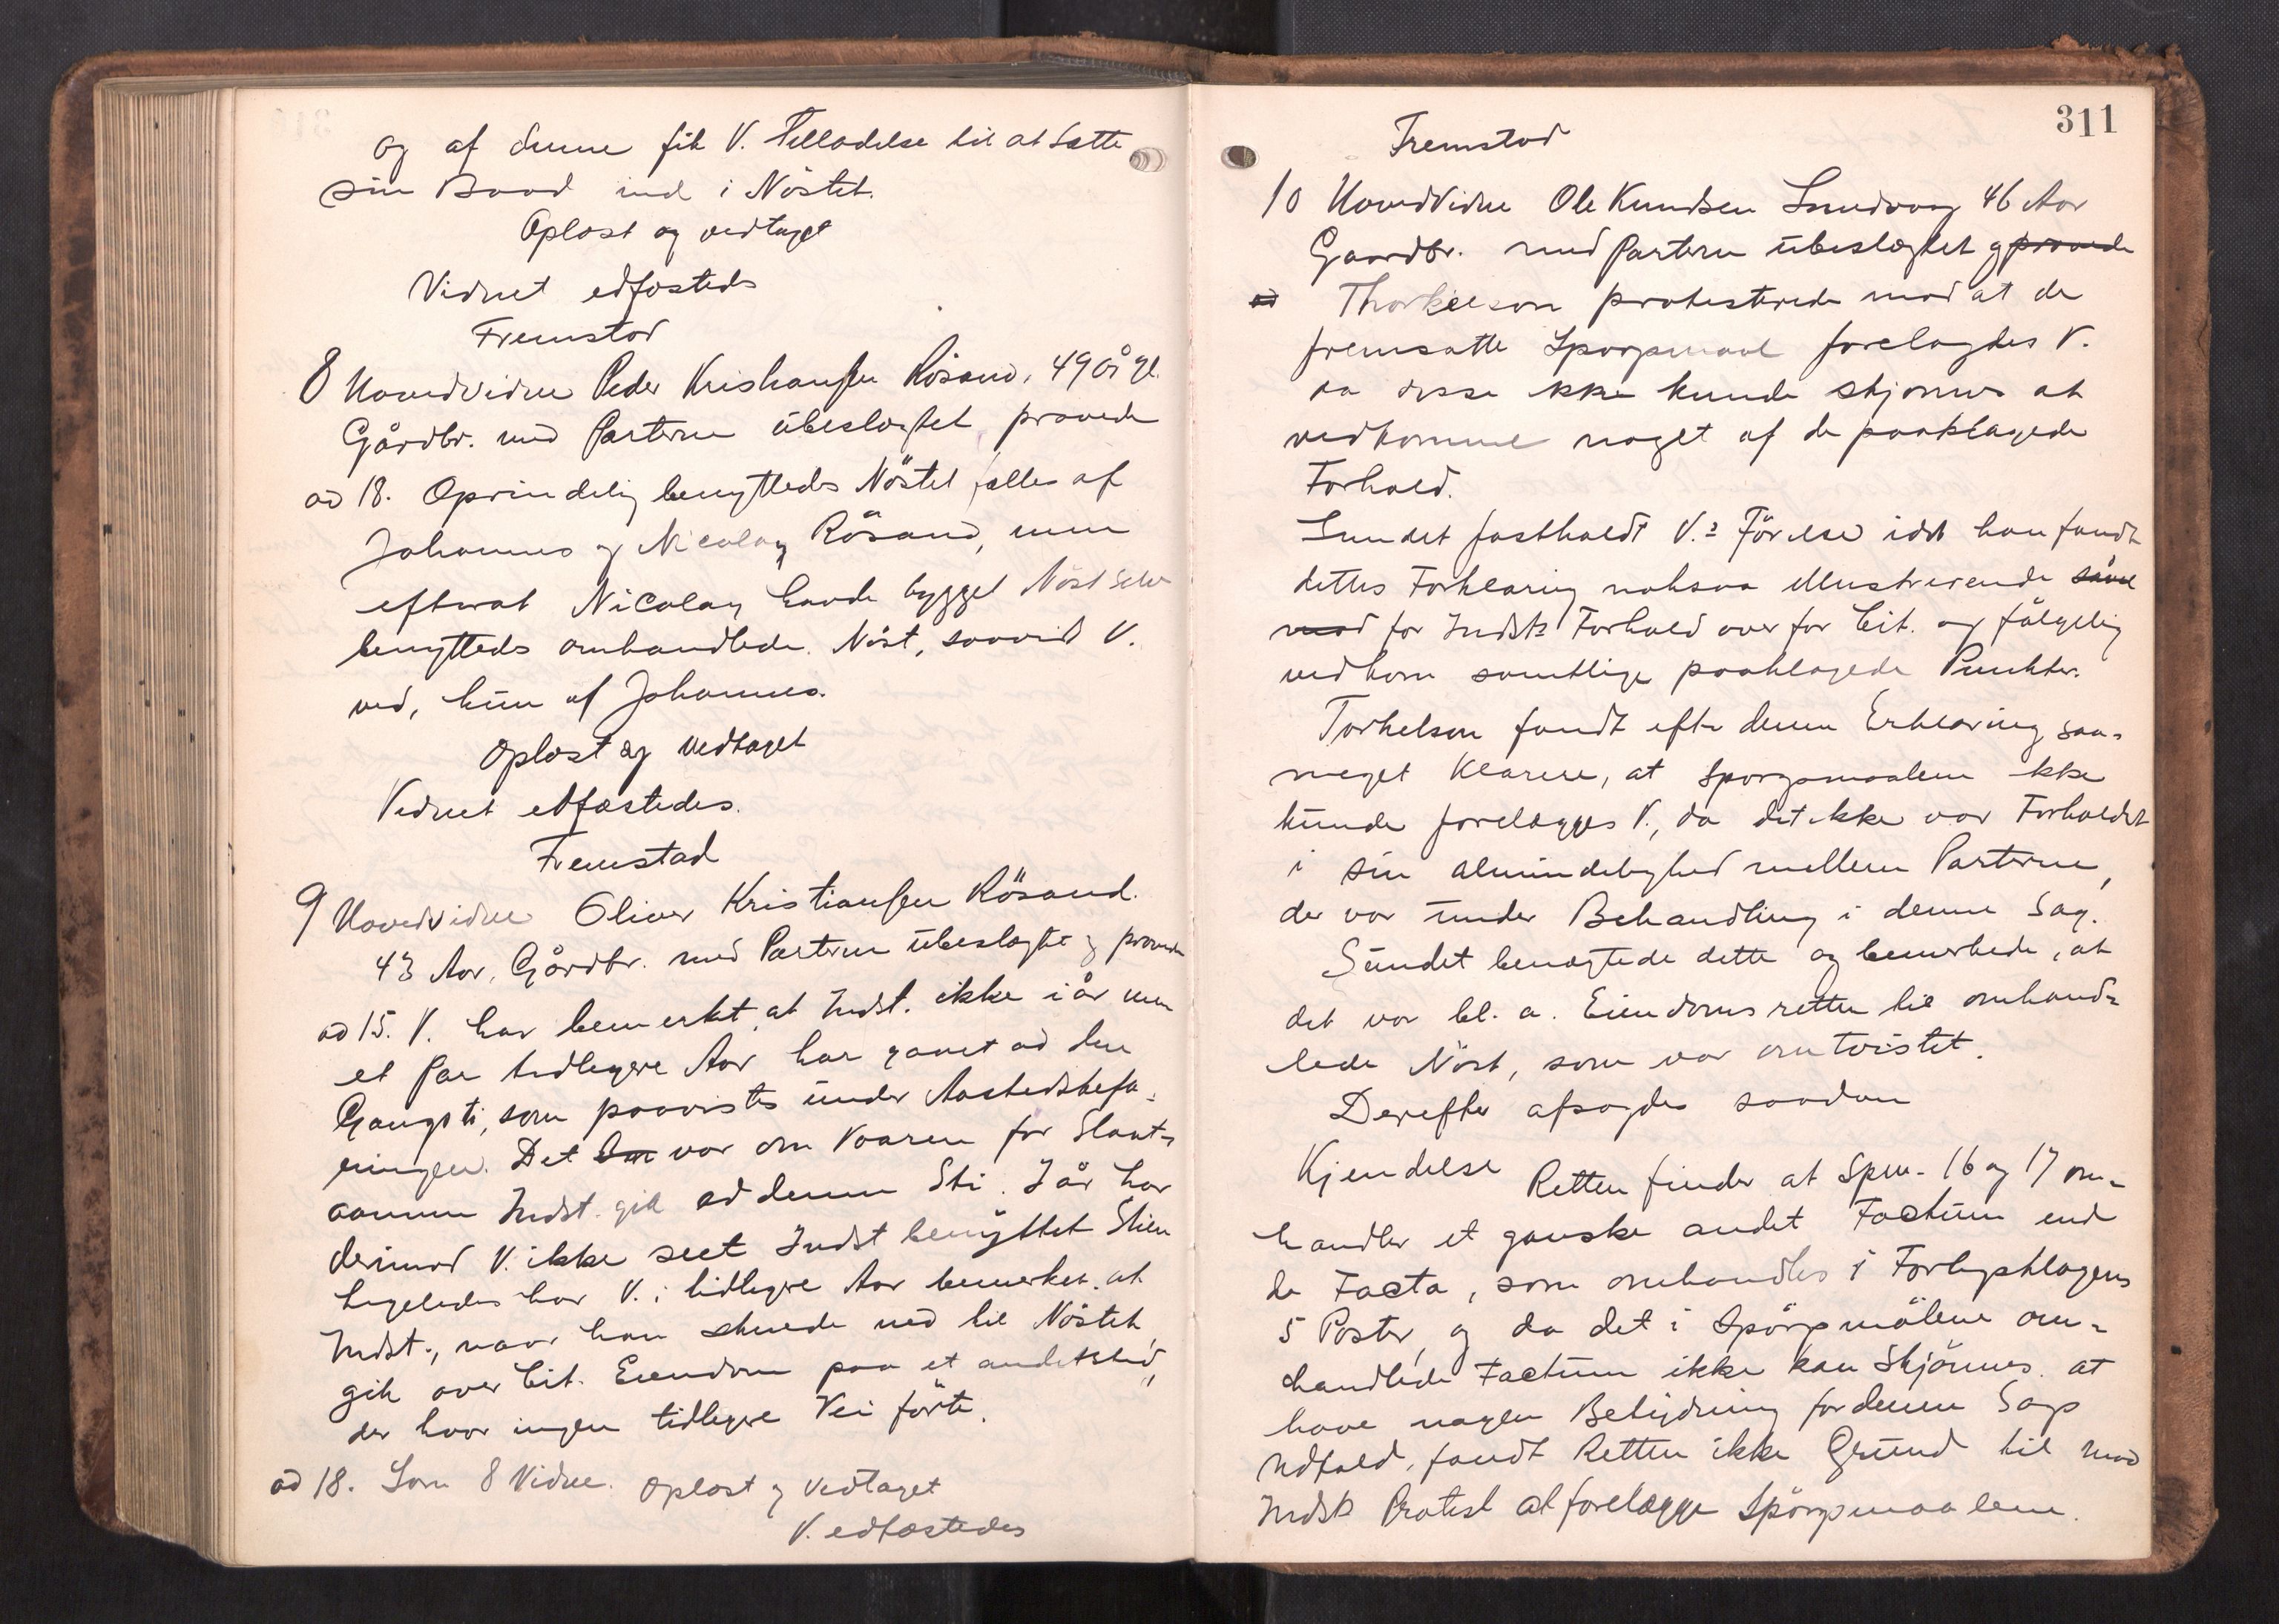 og af denne fik V. Tilladelse til at sætte
sin Baad ind i Nöstet.
Oplæst og vedtaget
Vidnet edfæstedes
Fremstod
8 Hovedvidne Peder Kristiansen Rösand, 49 år gl.
Gårdbr. med Parterne ubeslægtet, provede
ad 18. Oprindelig benyttedes Nöstet fælles af
Johannes og Nicolay Rösand, men
efterat Nicolay havde bygget Nöst selv
benyttedes omhandlede Nöst, saavid V.
ved, kun af Johannes.
Oplæst og vedtaget
Vidnet edfæstedes.
Fremstod
9 Hovedvidne Oliver Kristiansen Rösand.
43 Aar, Gårdbr. med Parterne ubeslægtet og provede
ad 15. V. har bemerket, at Indst. ikke i år men
et Par tidligere Aar har gaaet ad den
Gangsti, som paavistes under Aastedsbefa-
ringen. Det var om Vaaren før Slaat-
aannen Indst. gik ad denne Sti. I år har
derimod V. ikke seet Indst benyttet Stien
ligeledes har V. i tidligere Aar bemerket, at
Indst., naar han skulde ned til Nöstet,
gik over Cit. Eiendom paa et andet sted,
der hvor ingen tidligere Vei förte.
ad 18. Som 8 Vidne. Oplæst og vedtaget
V. edfæstedes
311
Fremstod
10 Hovedvidne Ole Knudsen Sundvaag 46 Aar
Gaardbr. med Parterne ubeslægtet og provede
ad Thorkelson protesterede mod at de
fremsatte Spørgsmaal forelagdes V.
da disse ikke kunde skjønnes at
vedkomme noget af de paaklagede
Forhold.
Sundet fastholdt V.s Förelse idet han fandt
dettes Forklaring noksaa illustrerende
for Indsts Forhold overfor Cit. og fölgelig
vedkom samtlige paaklagede Punkter.
Torkelson fandt efter denne Erklæring saa-
meget klarere, at Spørgsmaalene ikke
kunde forelægges V., da det ikke var Forholdet
i sin almindelighed mellem Parterne,
der var under Behandling i denne Sag.
Sundet benægtede dette og bemerkede, at
det var bl. a. Eiendomsretten til omhand-
lede Nöst, som var omtvistet.
Derefter afsagdes saadan
Kjendelse
Retten finder at Spm. 16 og 17 om-
handler et ganske andet Factum end
de Facta, som omhandles i Forligsklagens
5 Poster, og da det i Spörgsmålene om-
handlede Factum ikke kan Skjönnes at
have nogen Betydning for denne Sags
Udfald, fandt Retten ikke Grund til mod
Indsts Protest at forelægge Spörgsmaalene.